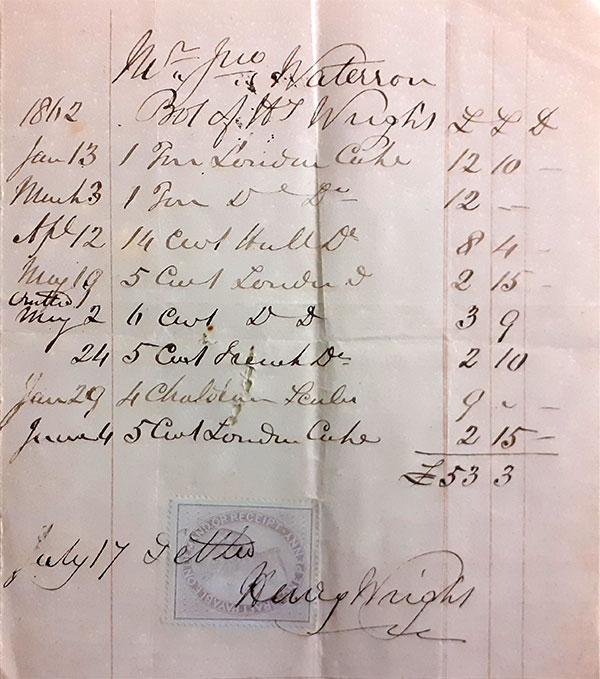 Mr Jno Waterson
1862 Bot of H Wright £ S D
Jan 13 1 Ton London Cake 12 10 -
March 3 1 Ton Do Do 12 - -
Apl 12 14 Cwt Hull Do 8 4 -
May 19 5 Cwt London D 2 15 -
Omitted
May 2 6 Cwt D D 3 9
24 5 Cwt French Do 2 10
Jan 29 4 Chaldron 9 - -
June 4 5 Cwt London Cake 2 15 -
£ 53 3
July 17 Settled
Henry Wright
OR RECEIPT